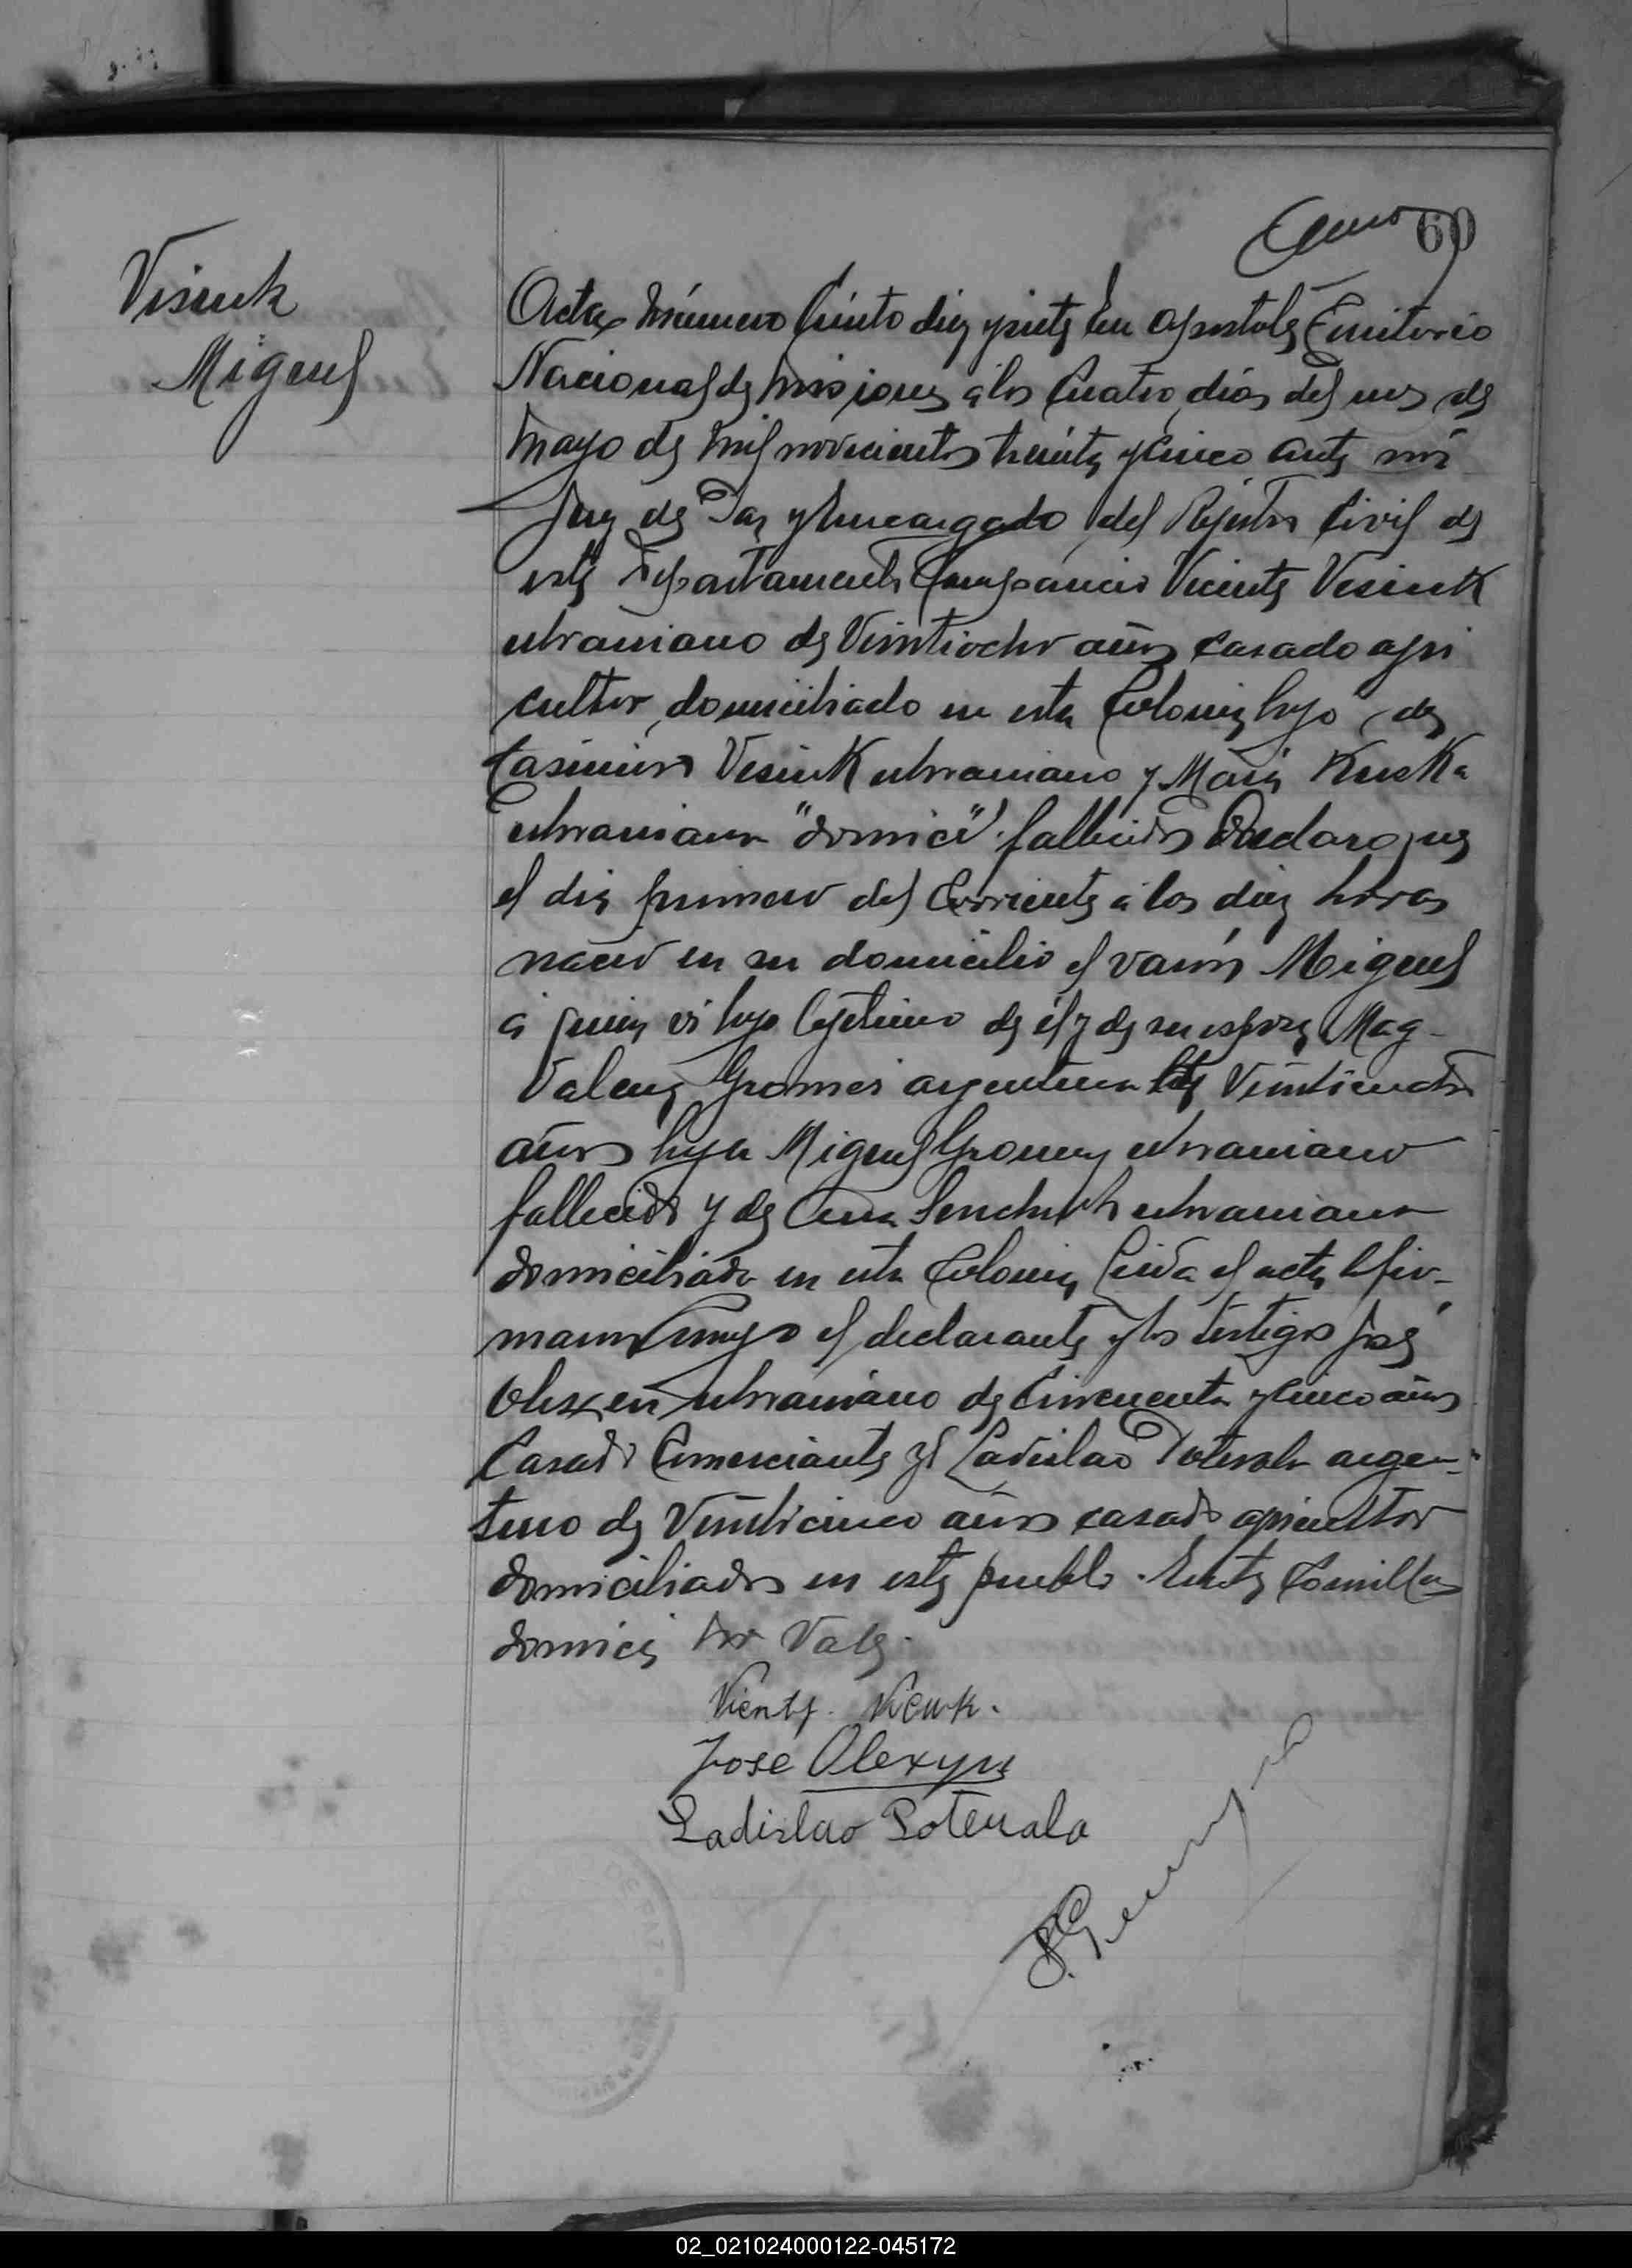 60
Visiuk
Miguel
Acta número ciento diez y siete En Apostoles Territorio
Nacional de Misiones a los cuatro dias del mes de
mayo de mil novecientos treinta y cinco ante mi
Juez de Paz y Encargado del Rejistro Civil de
este Departamento Compareció Vicente Vesiuk
ukraniano de Veintiocho años casado agri
cultor, domiciliado en esta Colonia hijo de
Casimiro Vesiuk ukraniano y Maria Kuska
ukraniana "domici" fallecidos Declaro que
el dia primero del Corriente a las diez horas
nacio en su domicilio el varon Miguel
a quien vi hijo lejitimo de él y de su esposa Mag-
dalena Gromei argentina de Veinticuatro
años hija Miguel Gromey ukraniano
fallecido y de Ana Senchuk ukraniana
domiciliada en esta Colonia Leida el acta la fir-
maron conmigo el declarante y los testigos José
Olexen ukraniano de Cincuenta y cinco años
Casado Comerciante y Ladislao Poterala argen-
tino de Veinticinco años casado agricultor
domiciliados en este pueblo. Entre Comillas
domici No Vale.
Vicente
José Olexyn
Ladislao Poterala
02_021024000122-045172